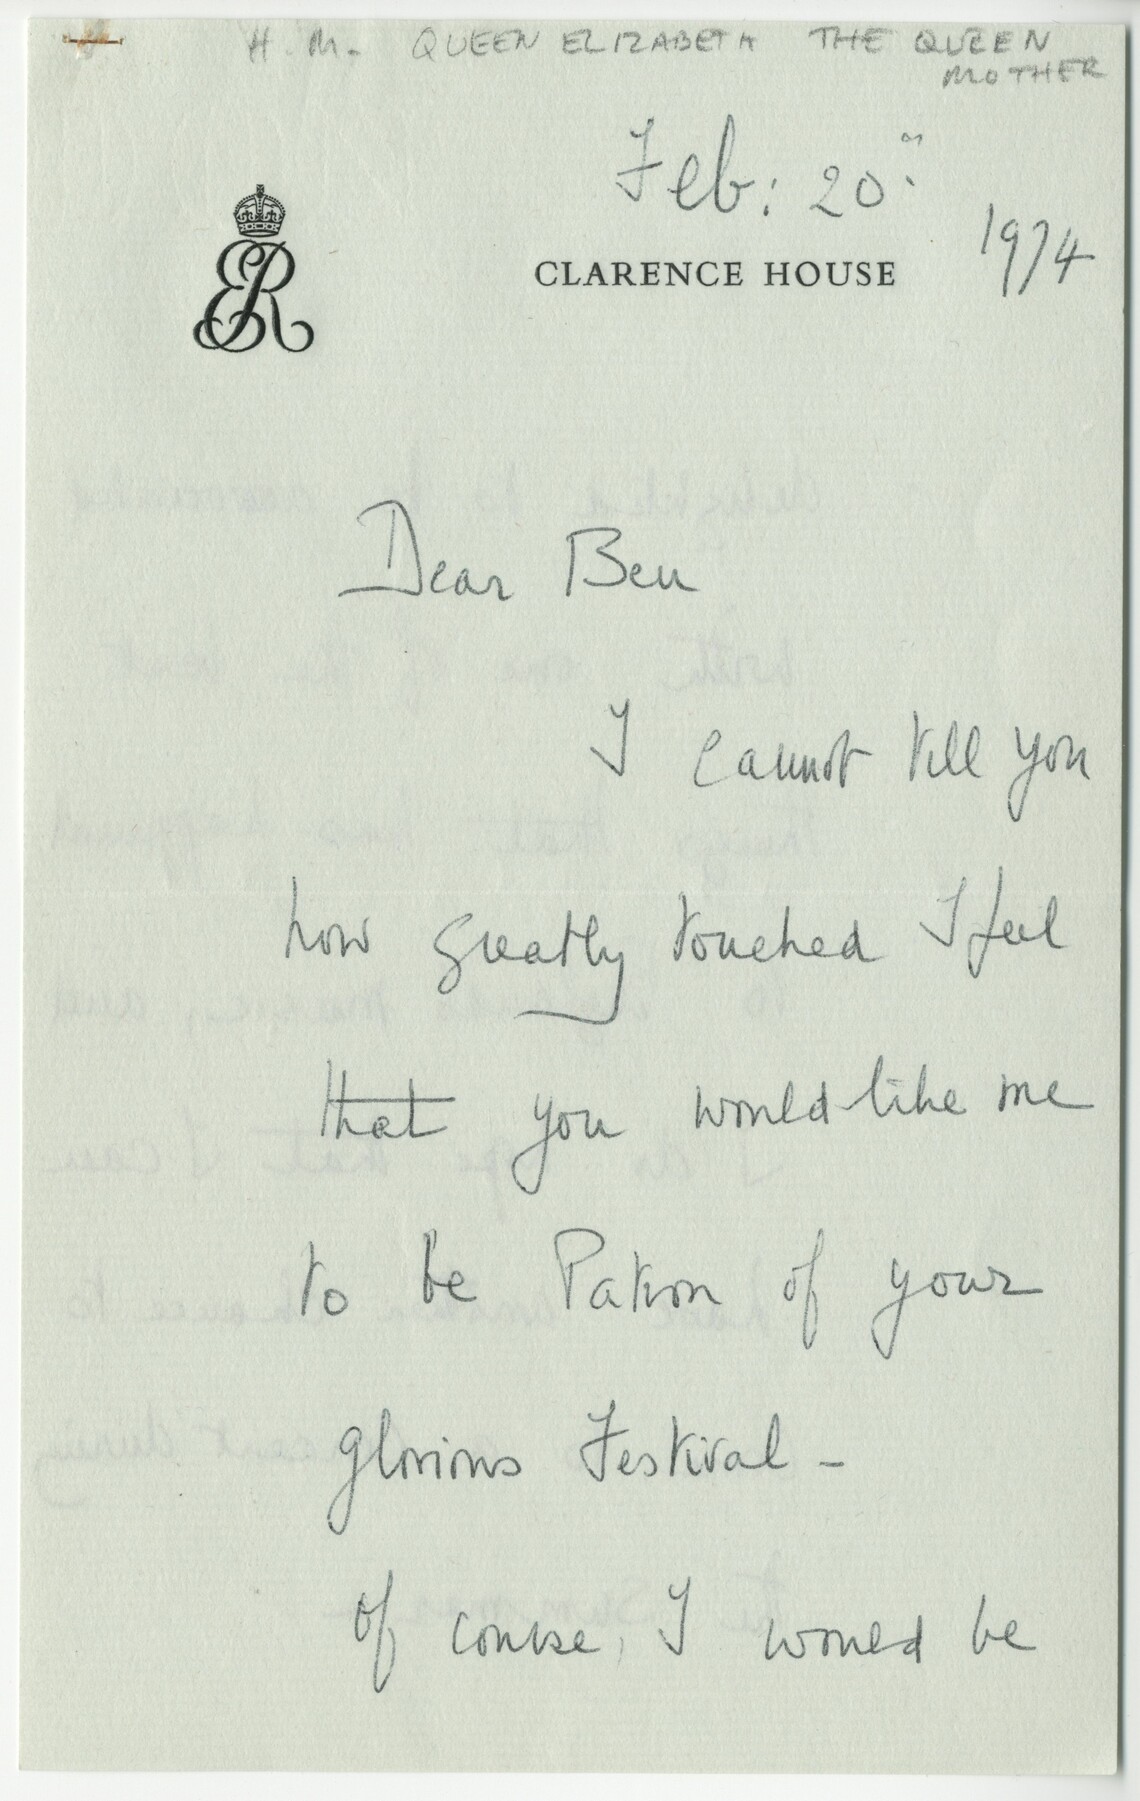 H. M. QUEEN ELIZABETH THE QUEEN
MOTHER
Feb: 20th
1974
ER
CLARENCE HOUSE
Dear Ben
I cannot tell you
how greatly touched I feel
that you would like me
to be Patron of your
glorious Festival -
Of course, I would be